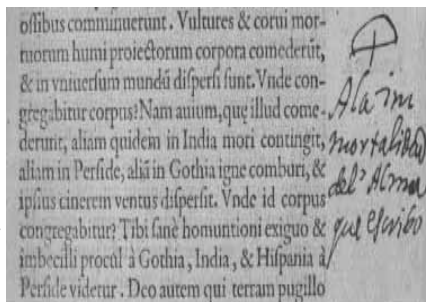 ossibus comminuerunt. Vultures & corui mor-
tuorum humi proiectorum corpora comederūt,
& in vniuersum mundū dispersi sunt. Vnde con-
gregabitur corpus? Nam auium, quę illud come-
derunt, aliam quidem in India mori contingit,
aliam in Perside, aliā in Gothia igne comburi, &
ipsius cinerem ventus dispersit. Vnde id corpus
congregabitur? Tibi sanè homuntioni exiguo &
imbecilli procùl à Gothia, India, & Hispania à
Perside videtur. Deo autem qui terram pugillo
A la im
mortalidad
del Alma
que escribo